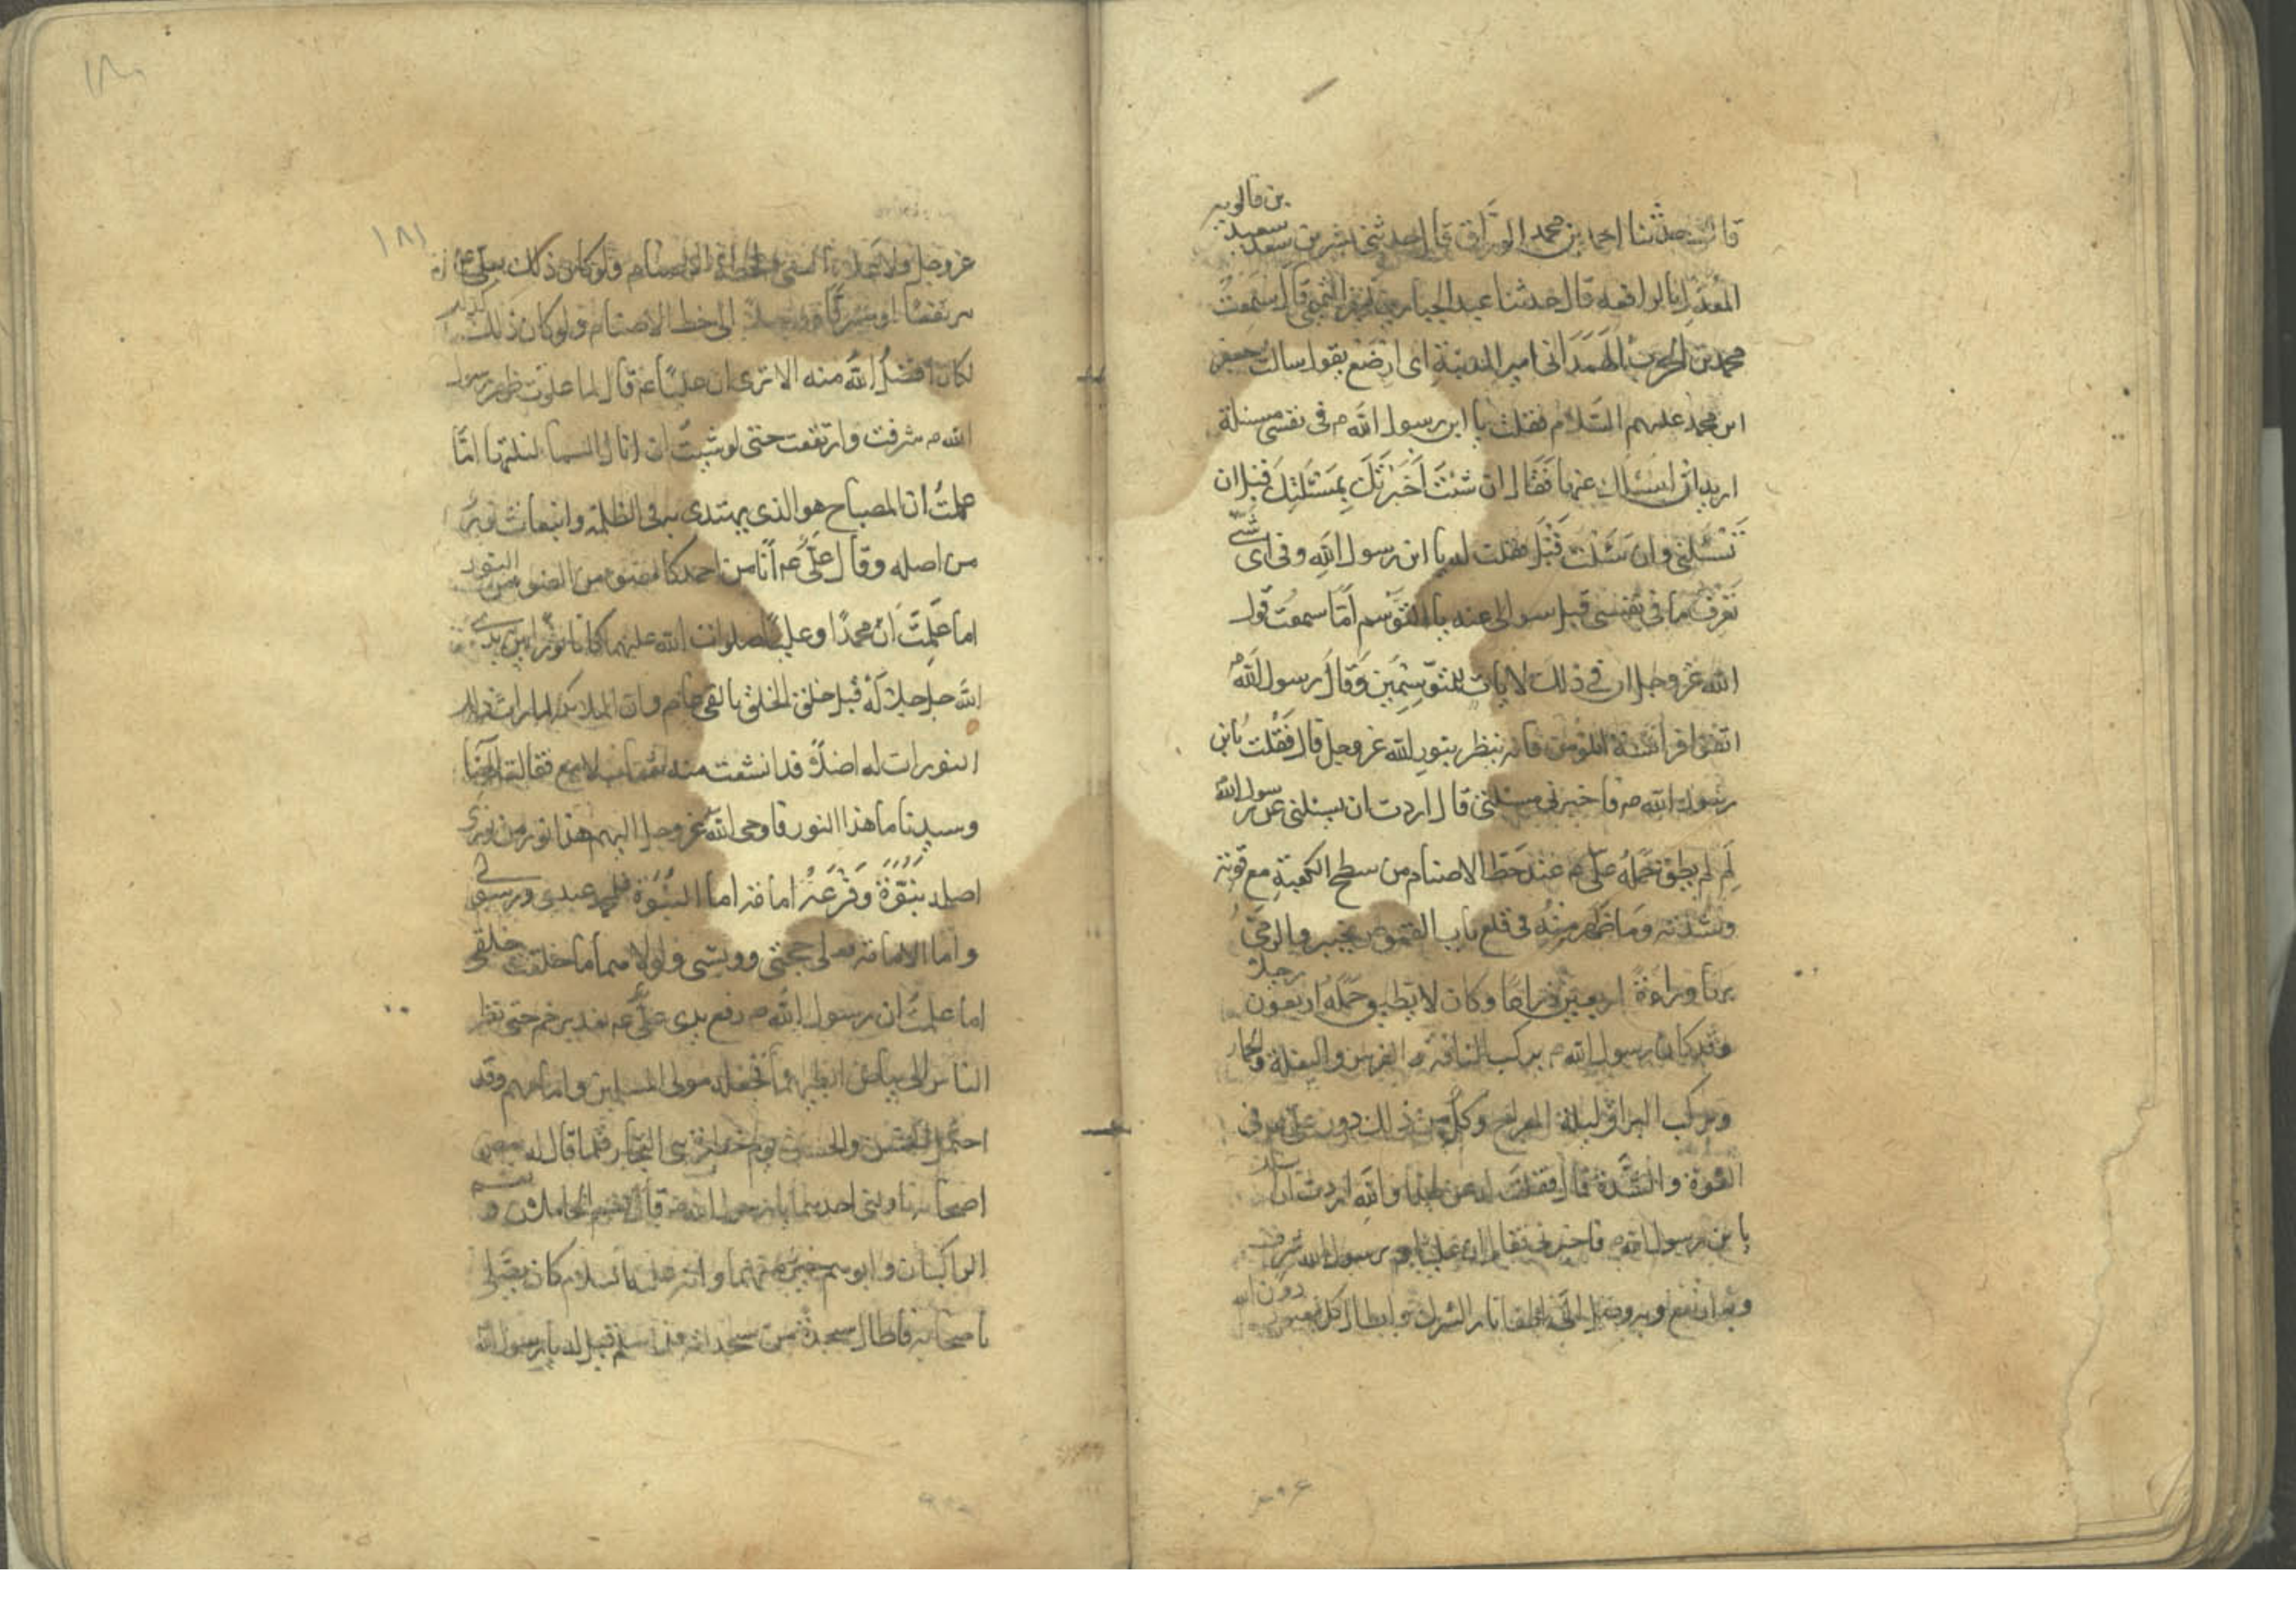 بن قالويه
قال حدثنا احمد بن محمد الوراق قال حدثنى بشر بن سعيد
المعدل بالرافعه قال حدثنا عبد الجبار بن كثير التميمى قال سمعت
محمد بن الحرب الهمدانى امير المدينة اى ارضع يقول سالت جعفر
ابن محمد عليهم السلام فقلت يا ابن رسول الله ص فى نفسى مسئلة
اريد ان اسئلك عنها فقال ان شئت اخبرتك بمسئلتك قبل ان
تسئلنى وان شئت فقلت له يا ابن رسول الله وفى اى شئ
تعرف ما فى نفسى قبل سوالى عنه يا التوسم اما سمعت قول
الله عز وجل ان فى ذلك لايات للمتوسمين وقال رسول الله ص
اتقوا فراسة المؤمن فانه ينظر بنور الله عز وجل قال فقلت يابن
رسول الله ص فاخبرنى بمسئلتى قال اردت ان تسئلنى عن رسول الله
لم لم يطق حمله على ع عند حط الاصنام من سطح الكعبة مع قوته
وشدته وما ظهر منه فى قلع باب القموص بخيبر والرمى
بها وراءه اربعين ذراعا وكان لا يطيق حمله اربعون رجلا
وقد كان رسول الله ص يركب الناقة و الفرس والبغلة والحمار
وركب البراق ليلة المعراج وكل من ذلك دون على فى
القوة والشدة قال فقلت له عن هذا والله اردت ان
يا بن رسول الله ص فاخبرنى فقال ان عليا ع برسول الله شرف
وبه ارتفع وبه وصل الى اطفا نار الشرك وابطال كل معبود دون الله
١٨١
عز وجل ولو علاه النبى لحط الاصنام ولو كان ذلك
مرتفعا وشريفا وواصلا الى حط الاصنام ولو كان ذلك
لكان افضل الله منه الا ترى ان عليا ع قال لما علوت ظهر رسول
الله ص شرفت وارتفعت حتى لو شئت ان انال السما لنلتها اما
علمت ان المصباح هو الذى يهتدى به فى الظلمة وانبعاث نوره
من اصله وقال على ع انا من احمد كالضوء من الضوء
اما علمت ان محمدا وعليا صلوات الله عليهما كانا نورا بين يدى
الله جل جلاله قبل خلق الخلق بالفى عام وان الملائكة لما رات ذلك
النور رات له اصلا قد انشعب منه شعاع لامع فقالت الهنا
وسيدنا ما هذا النور فاوحى الله عز وجل اليهم هذا نور من نورى
اصله نبوة وفرعه امامة اما النبوة فلمحمد عبدى ورسولى
واما الامامة فعلى حجتى ووليى ولولاهما ما خلقت خلقى
اما علمت ان رسول الله ص رفع يدى على ع بغدير خم حتى نظر
الناس الى بياض ابطيهما فجعله مولى المسلمين وامامهم وقد
احتمل الحسن والحسين يوم حظيرة بنى النجار فلما قال له بعض
اصحابه ناولنى احدهما يا رسول الله ص قال نعم الحاملان و
الراكبان وابوهما خير منهما وانه عليه السلام كان يصلى
باصحابه فاطال سجدة من سجداته فلما سلم قيل له يا رسول الله